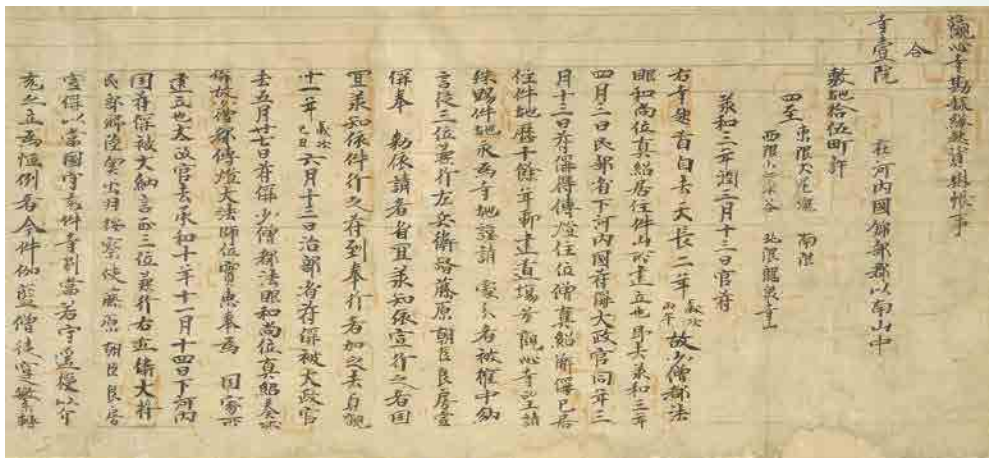 觀心寺勘録縁起資財帳事
合
寺壹院 在河内國錦部郡以南山中
敷地拾伍町許
四至 東限 南限
西限小 谷 北限龍泉寺山
承和三年潤三月十三日官符
右寺 首自去天長二年歳次 故少僧都法
眼和尚位真紹居住件山所建立也即去承和三年
四月二日民部省下河内國符偁太政官同年三
月十三日符偁得傳燈住位僧真紹解偁已居
住件地歴十餘年新建道場号觀心寺望請
殊賜件地永爲寺地謹請 裁者被權中納
言従三位兼行左兵衛督藤原朝臣良房宣
偁奉 勅依請者省宜承知依宣行之者国
宜承知依件行之符到奉行者加之去貞觀
十一年歳次己丑六月十三日治部省符偁被太政官
去五月廿七日符偁少僧都法眼和尚位真紹奏状
偁故僧都傳燈大法師位實恵奉爲 国家所
建立也太政官去承和十年十一月十四日下河内
国符偁被大納言正三位兼行右近衛大将
民部卿陸奥出羽按察使藤原朝臣良房
宣偁以當國守充件寺別當若守遥授以介
充之立爲恒例者今件伽藍僧徒寔繁轉